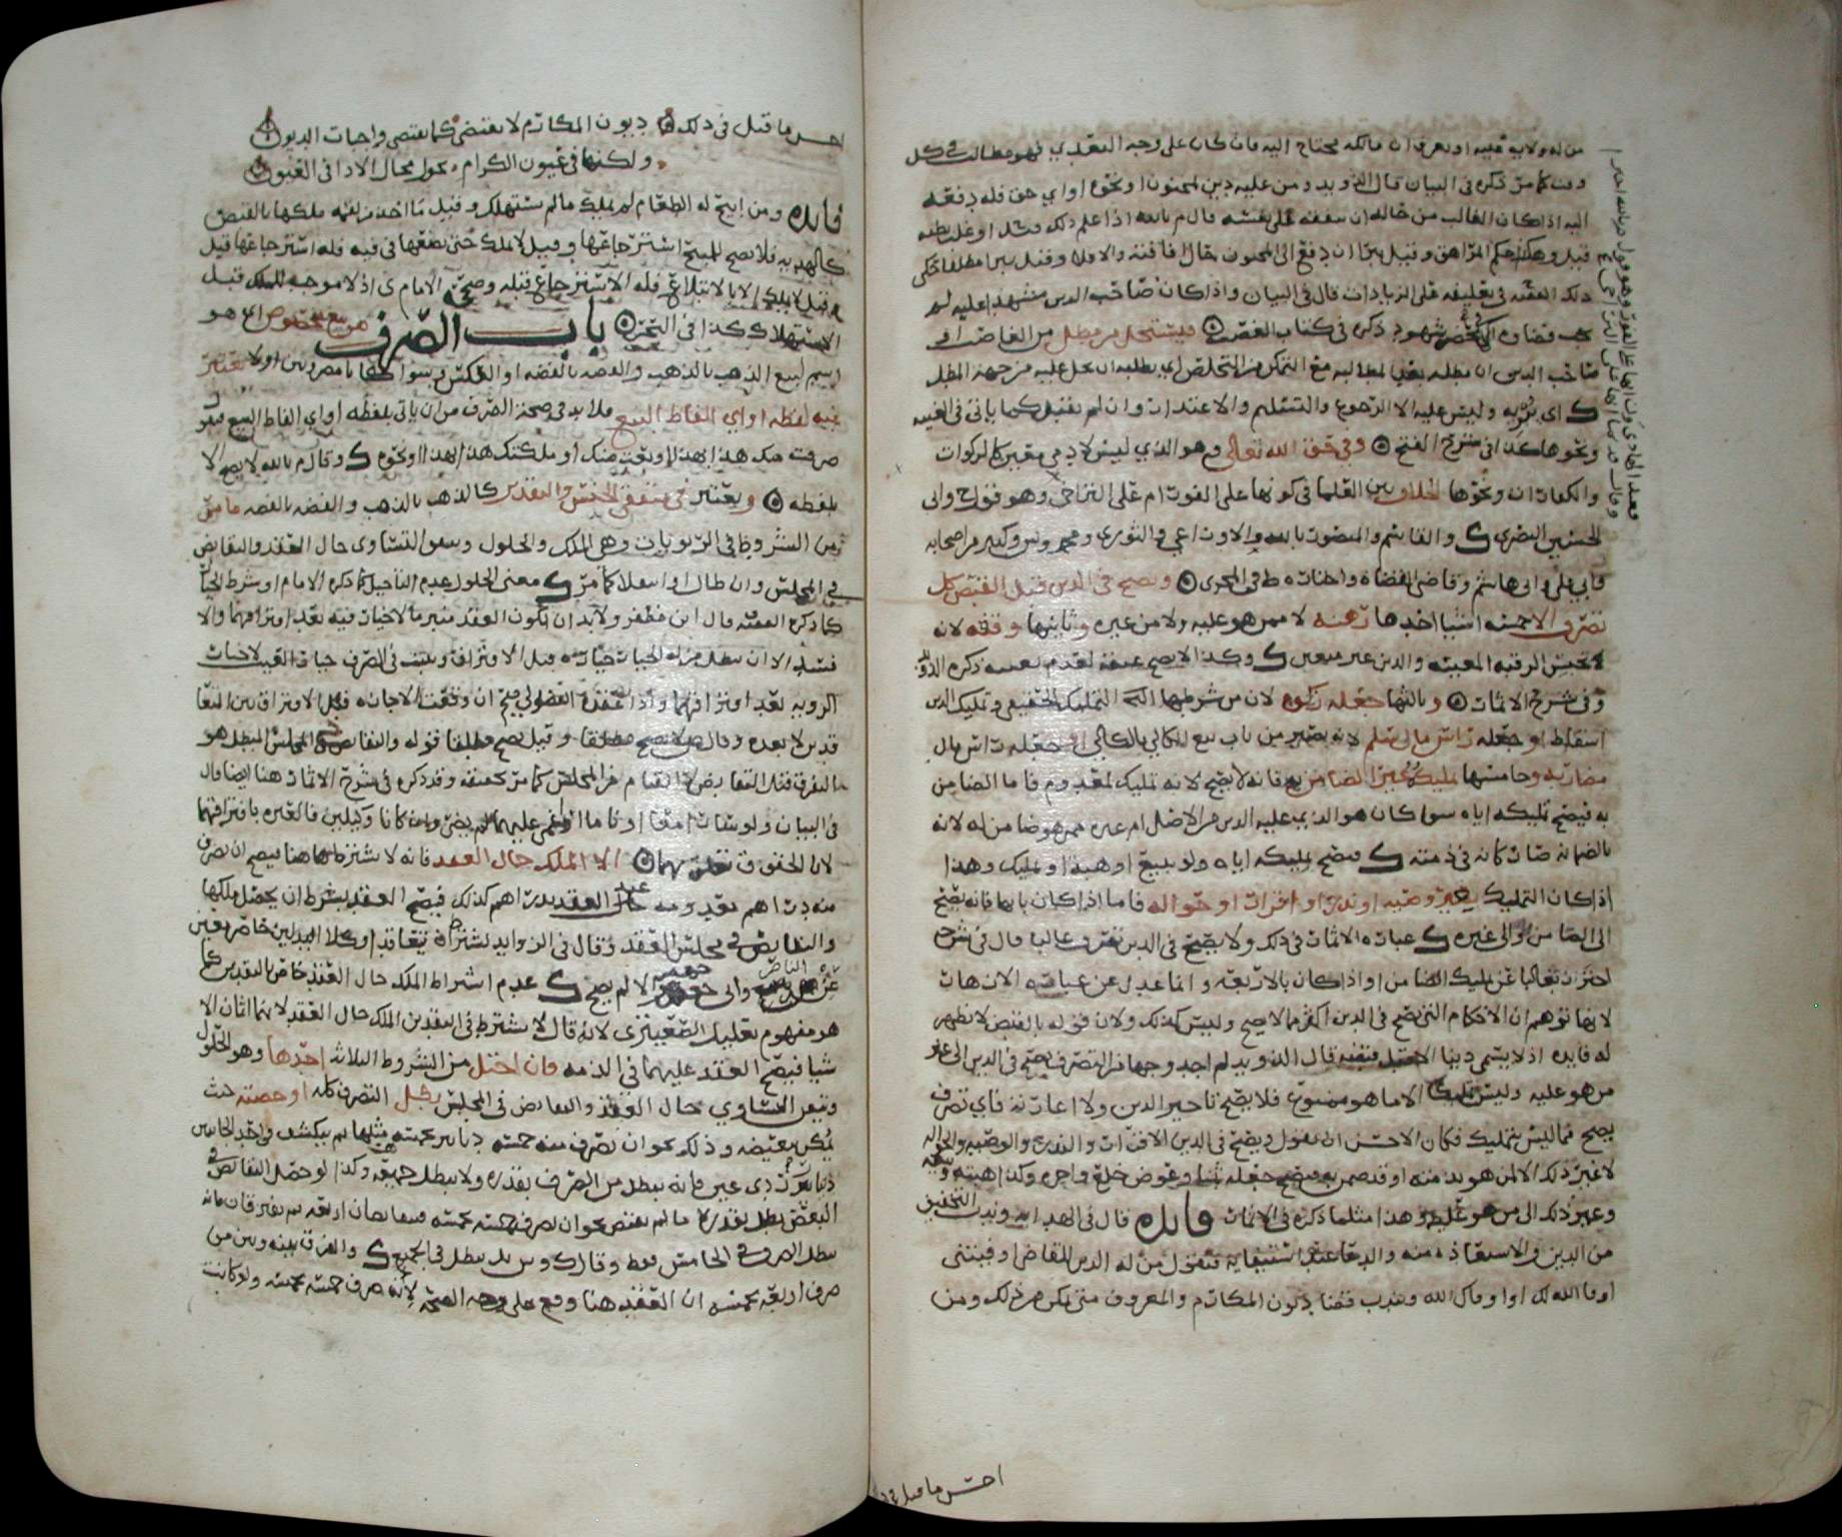 من له ولاية قبضه او يعرف ان مالكه محتاج اليه فان كان على وجه التعدي فهو مطالب في كل
وقت كما مر ذكره في البيان قال الذويد ومن عليه دين لمجنون او نحوه او اي حق فله دفعه
اليه اذا كان الغالب من حاله ان ينفقه على نفسه قال م بالله اذا علم ذلك منه او غلب بظنه
قيل وهكذا حكم المراهق وقيل يبرا ان دفع الى المجنون بحال افاقته والا فلا وقيل يبرا مطلقا حكى
ذلك الفقيه في تعليقه على الزيادات قال في البيان واذا كان صاحب الدين مشهدا عليه لم
يجب قضاوه الا بمحضر شهود ذكره في كتاب الغصب فيستحل من مطل من الغاصب او
صاحب الدين ان مطله بعد المطالبه مع التمكن من التخلص اي يطلبه ان يحل عليه من جهة المطل
ك اي يبريه وليس عليه الا الرجوع والتسليم والاعتذار وان لم يقبل كما ياتي في الغيبه
ونحوها كذا في شرح الفتح وفي حق الله تعالى وهو الذي ليس لادمي معين كالزكوات
والكفارات ونحوها الخلاف بين العلما في كونها على الفور ام على التراخي وهو قول ح وابي
الحسين البصري ك والقاسم والمنصور بالله والاوزاعي والثوري ومحمد وس وكثير من اصحابه
وابي علي وابي هاشم وقاضي القضاة واحد ط في المجزي ويصح في الدين قبل القبض كل
تصرف الا خمسه اشيا احدها رهنه لا ممن هو عليه ولا من غيره وثانيها وقفه لانه
تحبيس الرقبه المعينه والدين غير متعين ك وكذا لا يصح عتقه لعدم تعينه ذكره الذويد
وفي شرح الاثمار وثالثها جعله زكوة لان من شرطها التمليك الحقيقي وتمليك الدين
اسقاط او جعله راس مال سلم لانه يصير من باب بيع الكالي بالكالي او جعله راس مال
مضاربه وخامسها تمليكه غير الضامن به فانه لا يصح لانه تمليك لمعدوم فاما الضامن
به فيصح تمليكه اياه سوا كان هو الذي عليه الدين من الاصل ام غيره ممن هو ضامن له لانه
بالضمانه صار كانه في ذمته ك فيصح تمليكه اياه ولو ببيع او هبه او تمليك وهذا
اذا كان التمليك بغير وصيه او نذر او اقرار او حواله فاما اذا كان بايها فانه يصح
الى الضامن والى غيره ك عبارة الاثمار في ذلك ولا يصح في الدين تصرف غالبا قال في شرحه
احترز بغالبا عن تمليك الضامن او اذا كان بالاربعه وانما عدل عن عبارة الازهار
لانها توهم ان الاحكام التي تصح في الدين اكثر مما لا يصح وليس كذلك ولان قوله بالقبض لا تظهر
له فايده اذ لا يسمى دينا الا قبل قبضه قال الذويد لم اجد وجها من التصرف يصح في الدين الى غير
من هو عليه وليس تمليكا الا ما هو ممنوع فلا يصح تاجير الدين ولا اعارته فاي تصرف
يصح مما ليس بتمليك فكان الاحسن ان يقول ويصح في الدين الاقرار والنذر والوصيه والحواله
لا غير ذلك الا لمن هو بذمته او قد ضمن به فيصح جعله ثمنا وعوض خلع واجره وكذا هبته وبيعه
وغير ذلك الى من هو عليه وهذا مثلما ذكره في الاثمار فايده قال في الهدايه وندب التخفيف
من الدين والاستعاذه منه والدعا عند استيفايه فيقول من له الدين للقاضي او فيتني
اوفا الله لك او اوفاك الله ويندب قضا ديون المكارم والمعروف متى تمكن من ذلك ومن
احسن ما قيل في ذلك
احسن ما قيل في ذلك ديون المكارم لا تقتضى كما تقتضى واجبات الديون
ولكنها في عيون الكرام تحول محال الاذا في العيون
فايده ومن ابيح له الطعام لم يملكه ما لم يستهلك وقيل ما اخذ من لقمه ملكها بالقبض
كالهديه فلا يصح للمبيح استرجاعها وقيل لا يملك حتى يضعها في فيه فله استرجاعها قبل
وقيل لا يملك الا بالابتلاع فله الاسترجاع قبله وصححه الامام ى اذ لا موجب للملك قبل
الاستهلاك كذا في البحر باب الصرف هو بيع مخصوص اي هو
اسم لبيع الذهب بالذهب والفضه بالفضه او العكس وسوا كانا مضروبين او لا يعتبر
فيه لفظه او اي الفاظ البيع فلا بد في صحة الصرف من ان ياتي بلفظه او اي الفاظ البيع نحو
صرفت منك هذا بهذا او بعت منك او ملكتك هذا بهذا او نحوه ك وقال م بالله لا يصح الا
بلفظه ويعتبر في متفقي الجنس والتقدير كالذهب بالذهب والفضه بالفضه ما مر
من الشروط في الربويات وهي الملك والحلول وتيقن التساوي حال العقد والتقابض
في المجلس وان طال او انتقلا كما مر ك معنى الحلول عدم التاجيل كما ذكره الامام او شرط الخيار
كما ذكره الفقيه قال ابن مظفر ولا بد ان يكون العقد منبرما لا خيار فيه بعد افتراقهما والا
فسد الا ان يبطل من له الخيار خياره قبل الافتراق ويثبت في الصرف خيار العيب لا خيار
الرويه بعد افتراقهما واذا عقده الفضولي صح ان وقعت الاجازه قبل الافتراق بين المتعا
قدين لا بعده وقال ص لا يصح مطلقا وقيل يصح مطلقا قوله والتقابض في المجلس المبطل هو
التفرق قبل التقابض لا القيام من المجلس كما مر تحقيقه وقد ذكره في شرح الاثمار هنا ايضا قال
في البيان ولو سارا معا او ناما او اغمي عليهما لم يضر ولو كانا وكيلين فالعبره بافتراقهما
لان الحقوق تتعلق بهما الا الملك حال العقد فانه لا يشترط هاهنا فيصح ان يصرف
منه دراهم بقدومه حال العقد بدراهم كذلك فيصح العقد بشرط ان يحصل ملكها
والتقابض في مجلس العقد وقال في الزوايد يشترط تعاقدا وكلا البدلين حاضر يعني
عن الناصر وابي جعفر والا لم يصح ك عدم اشتراط الملك حال العقد خاص بالنقدين كما
هو مفهوم تعليل الصعيتري لانه قال لا يشترط في النقدين الملك حال العقد لانهما اثمان الا
شيا فيصح العقد عليهما في الذمه فان اختل من الشروط الثلاثه احدها وهو الحلول
وتيقن التساوي حال العقد والتقابض في المجلس بطل التصرف كله او حصته حيث
يمكن تبعيضه وذلك نحو ان يصرف منه خمسه دنانير بخمسه مثلها ثم ينكشف واحد الخامس
دنانير ردي عين فانه يبطل من الصرف بقدره ولا يبطل جميعه وكذا لو حصل التقابض في
البعض بطل بقدره ما لم يقبض نحو ان يصرف خمسه بخمسه فيتقابضان اربعه ثم يفترقان فانه
يبطل الصرف في الخامس فقط وقال ك وس بل يبطل في الجميع ك والفرق بينه وبين من
صرف اربعه بخمسه ان العقد هنا وقع على وجه الصحه لانه صرف خمسه بخمسه ولو كانت